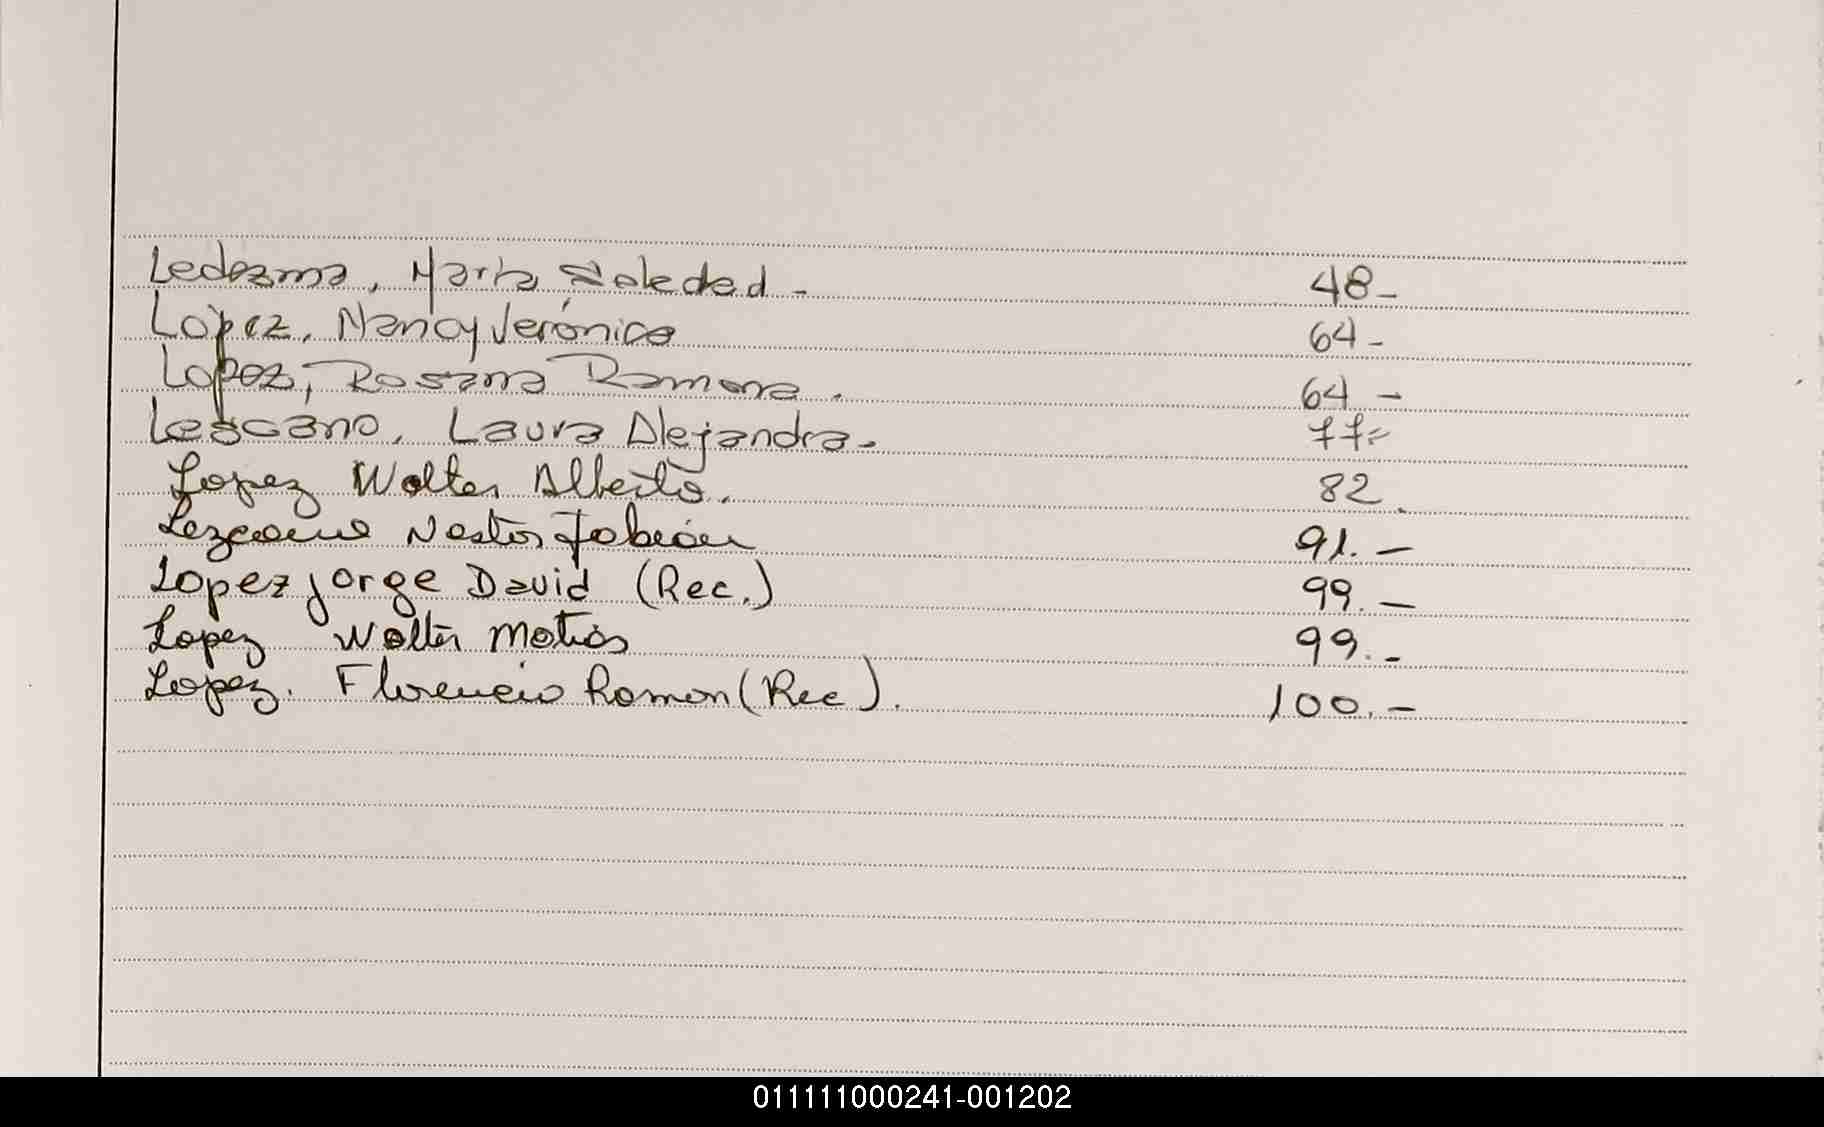 Ledezma, Maria Soledad - 48 -
López, Nancy Verónica 64 -
Lopez, Rosana Ramona. 64 -
Lescano, Laura Alejandra. 77=
Lopez Walter Alberto. 82.
Lezcano Nestor Fabián 91. -
Lopez Jorge David (Rec.) 99. -
Lopez Walter Matias 99. -
Lopez. Florencio Ramon (Rec). 100. -
011111000241-001202